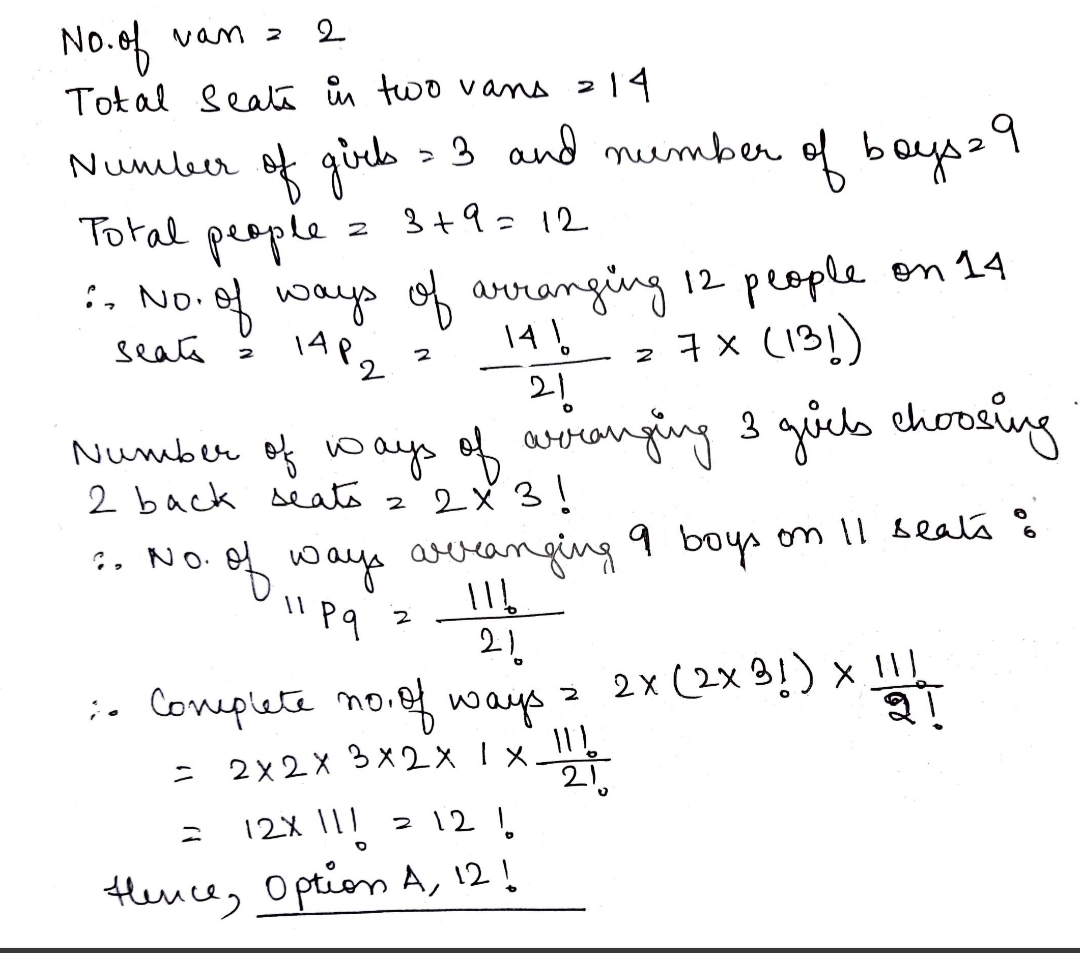 No. of van = 2
Total Seats in two vans = 14
Number of girls = 3 and number of boys = 9
Total people = 3+9 = 12
∴ No. of ways of arranging 12 people on 14
seats = 14P2 = 14!/2! = 7 x (13!)
Number of ways of arranging 3 girls choosing
2 back seats = 2 x 3!
∴ No. of ways arranging 9 boys on 11 seats :
11P9 = 11!/2!
∴ Complete no. of ways = 2 x (2 x 3!) x 11!/2!
= 2x2x 3x2x 1 x 11!/2!
= 12x 11! = 12!
Hence, Option A, 12!